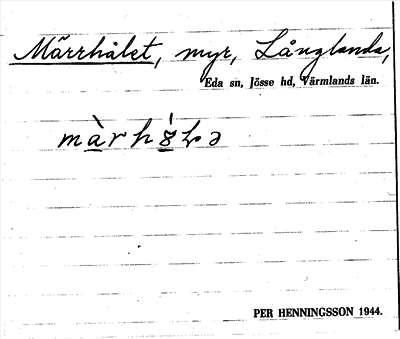 Märrhålet, myr, Långlanda,
Eda sn, Jösse hd, Värmlands län.
PER HENNINGSSON 1944.